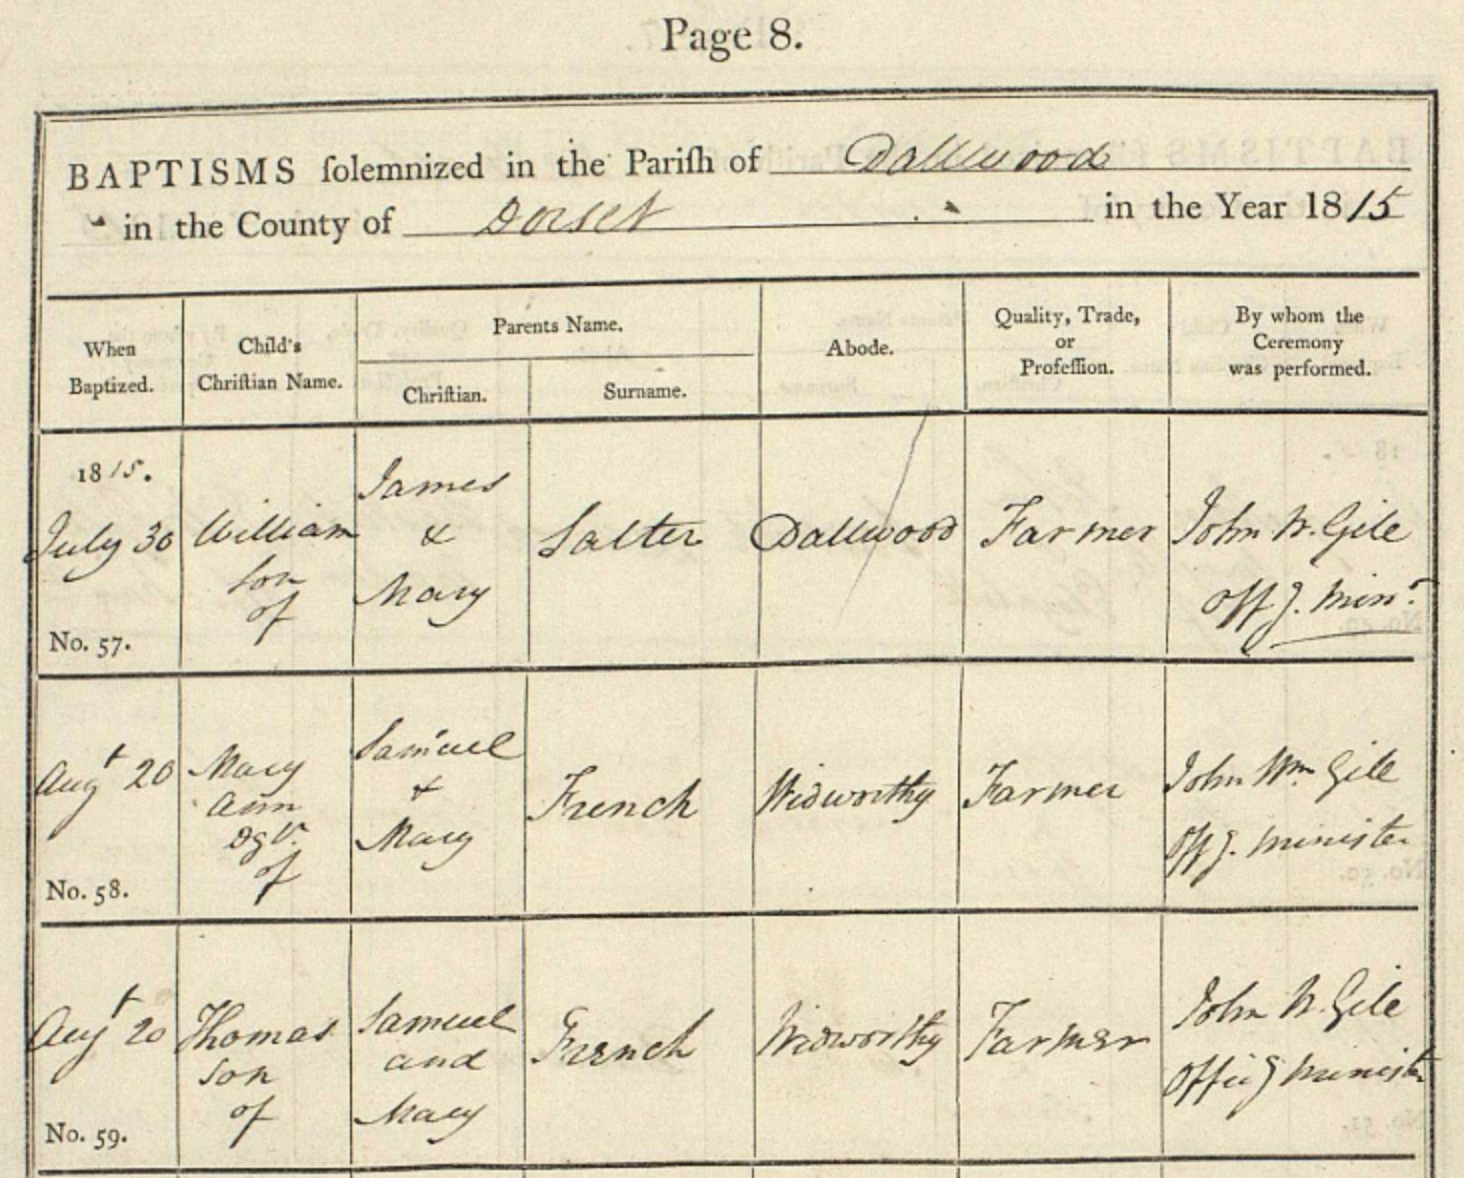 Page 8.
BAPTISMS solemnized in the Parish of Dallwood
in the County of Dorset in the Year 1815
When Baptized.
Child's Christian Name.
Parents Name.
Christian.
Surname.
Abode.
Quality, Trade, or Profession.
By whom the Ceremony was performed.
1815.
July 30
No. 57.
William
son
of
James
&
Mary
Salter
Dallwood
Farmer
John W. Gile
Offg. Minr.
Augt 20
No. 58.
Mary
Ann
Dgr.
of
Samuel
&
Mary
French
Widworthy
Farmer
John Wm Gile
Offg. Minister
Augt 20
No. 59.
Thomas
son
of
Samuel
and
Mary
French
Widworthy
Farmer
John W. Gile
Offig Minister